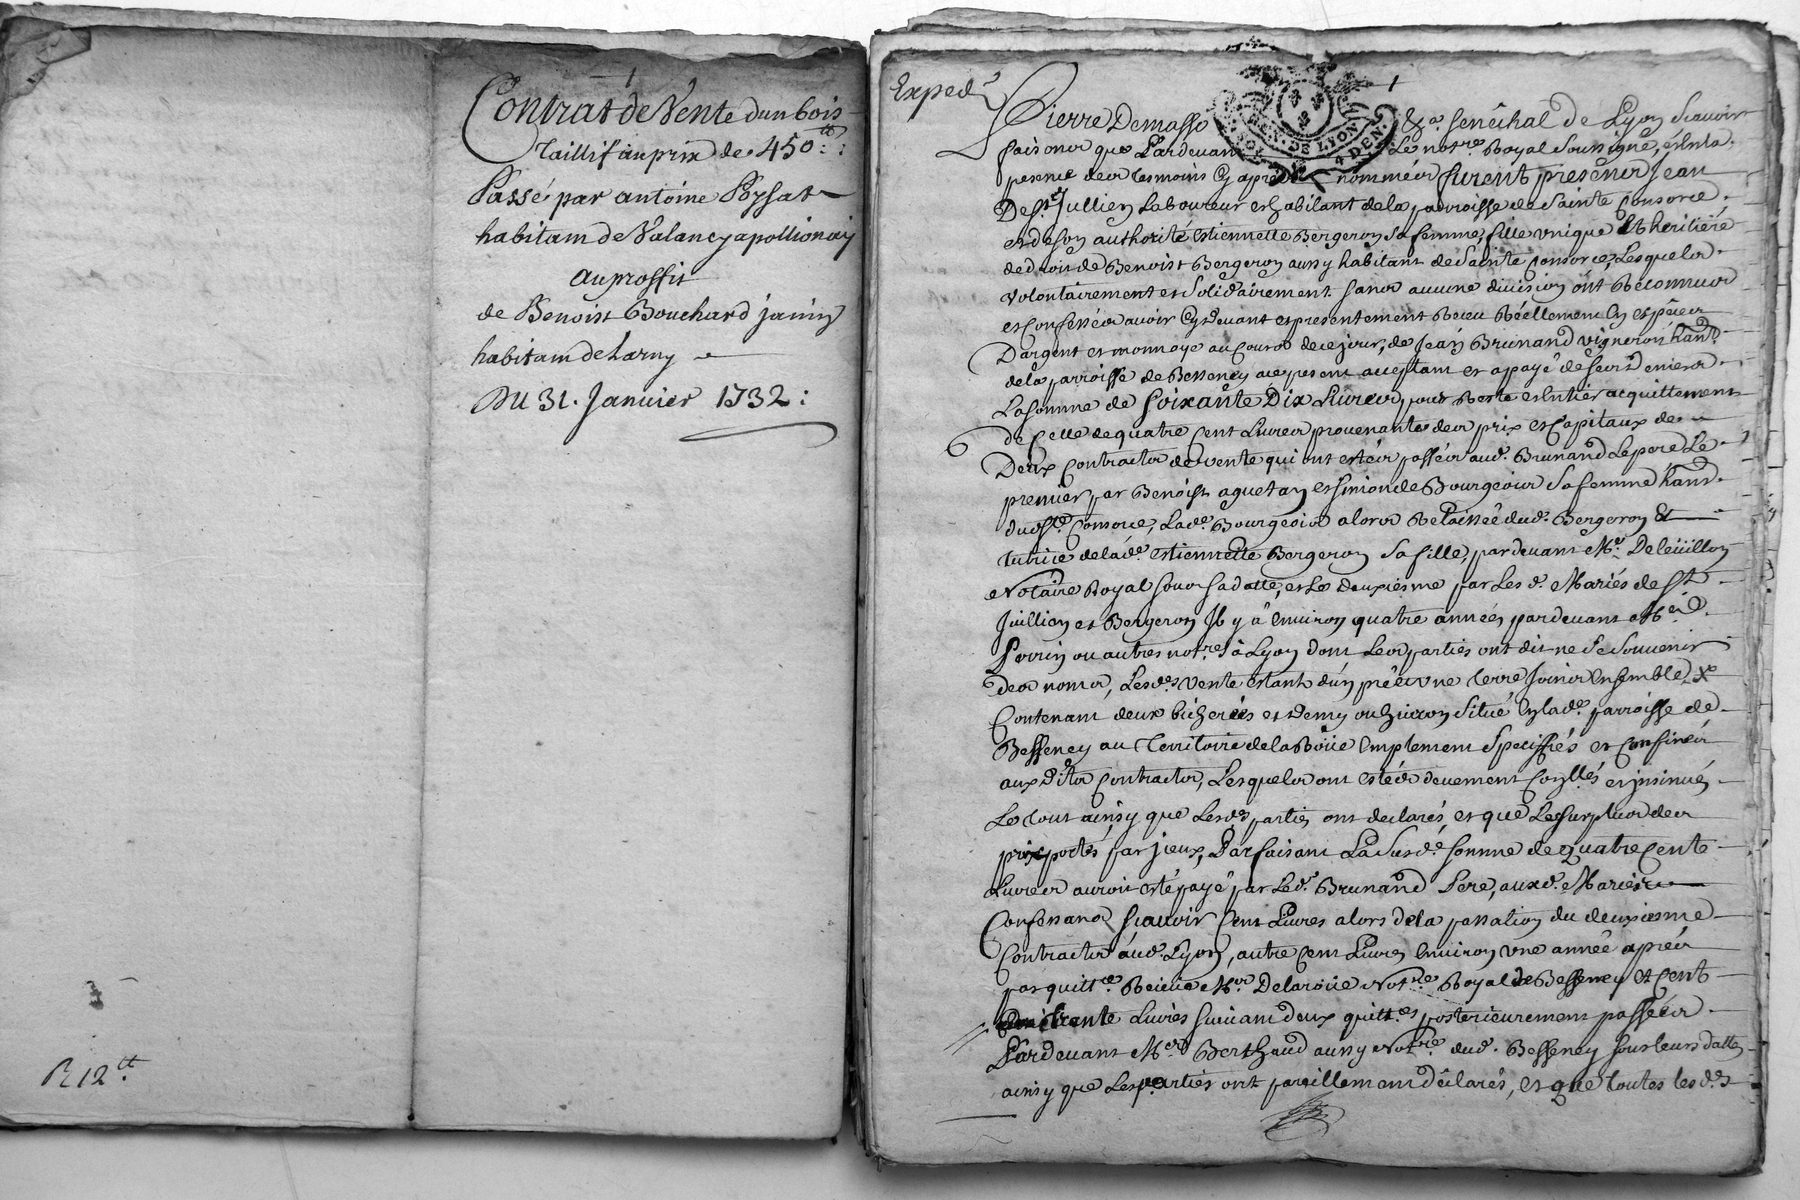 1
Contrat de Vente dun bois
Taillif au prix de 450 tt :
Passé par antoine Poysat
habitant de Valancy a pollionay
au proffit
de Benoist Bouchard janin
habitant de Larny
Du 31. Janvier 1732 :
R 12 tt
Exped.
1
GEN. DE LYON
4 DEN.
Pierre Demasso senêchal de Lyon Scavoir
faisons que Pardevant Le not.re Royal Soussigné, et en la
presence des tesmoins cy aprés nommés furent presens Jean
De S.t Jullien Laboureur et habitant de la parroisse de Sainte Consorce
et de son authorité Estiennette Bergeron sa femme, fille unique Et heritiere
de droit de Benoist Bergeron aussy habitant de Sainte Consorce, Lesquels
volontairement et Solidairement sans aucune division ont Reconnus
et Confessés avoir cy devant et presentement Receu Réellement en especes
Dargent et monnoye au cours de ce jour, de Jean Brunand vigneron hant.
de la parroisse de Besseney icy present acceptant et a payé de ses deniers
La somme de soixante Dix Livres, pour Reste et Entier acquittement
de Celle de quatre Cent Livres provenantes des prix et Capitaux de
Deux Contracts de vente qui ont estés passés aud. Brunand Le pere Le
premier par Benoist aguetan et Simonde Bourgeois sa femme hant.
dud. S.te Consorce, Lad.e Bourgeois alors Relaissée dud. Bergeron Et
tutrice de lad.e Estiennette Bergeron sa fille, pardevant M.e Deleüillon
Notaire Royal sous sa datte, et Le deuxiesme par Les d. Mariés de St
Jullien et Bergeron Il y â Environ quatre années pardevant M.e
Perrin ou autres not.res à Lyon dont Les parties ont dit ne se Souvenir
des noms, Lesd.es vente estant dún pré et une terre Joins Ensemble
Contenant deux bicherées et demy ou Environ Situé en lad.e parroisse de
Besseney au Territoire de la Roüe Emplement Speciffiés et Confinés
aux dits Contracts, Lesquels ont estés deuement Con.llés et insinués
Le tout ainsy que Lesd.es parties ont declarés, et que Le surplus des
prix portés par jeux, Parfaisant La susd.e somme de quatre Cente
Livres auroit esté payé par Led. Brunand Pere, auxd. Mariés
Confessans Scavoir Cent Livres alors de la passation du deuxiesme
Contracts aud. Lyon, autre Cent Livres Environ une année aprés
par quitt.ce Receüe M.e Delaroüe Not.re Royal de Besseney et Cent
trente Livres suivant deux quitt.es posterieurement passées
Pardevant M.e Berthaud aussy Not.re dud. Besseney sous leurs dattes
ainsy que Les parties ont pareillement déclarés, et que toutes les d.es